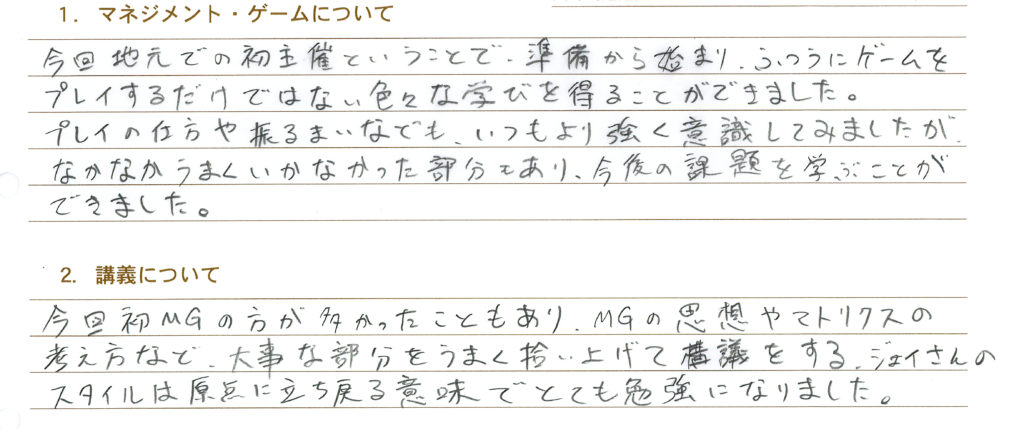 1. マネジメント・ゲームについて
今回地元での初主催ということで、準備から始まり、ふつうにゲームを
プレイするだけではない色々な学びを得ることができました。
プレイの仕方や振るまいなども、いつもより強く意識してみましたが、
なかなかうまくいかなかった部分もあり、今後の課題を学ぶことが
できました。
2. 講義について
今回初MGの方が多かったこともあり、MGの思想やマトリクスの
考え方など、大事な部分をうまく拾い上げて講義をする、ジェイさんの
スタイルは原点に立ち戻る意味でとても勉強になりました。